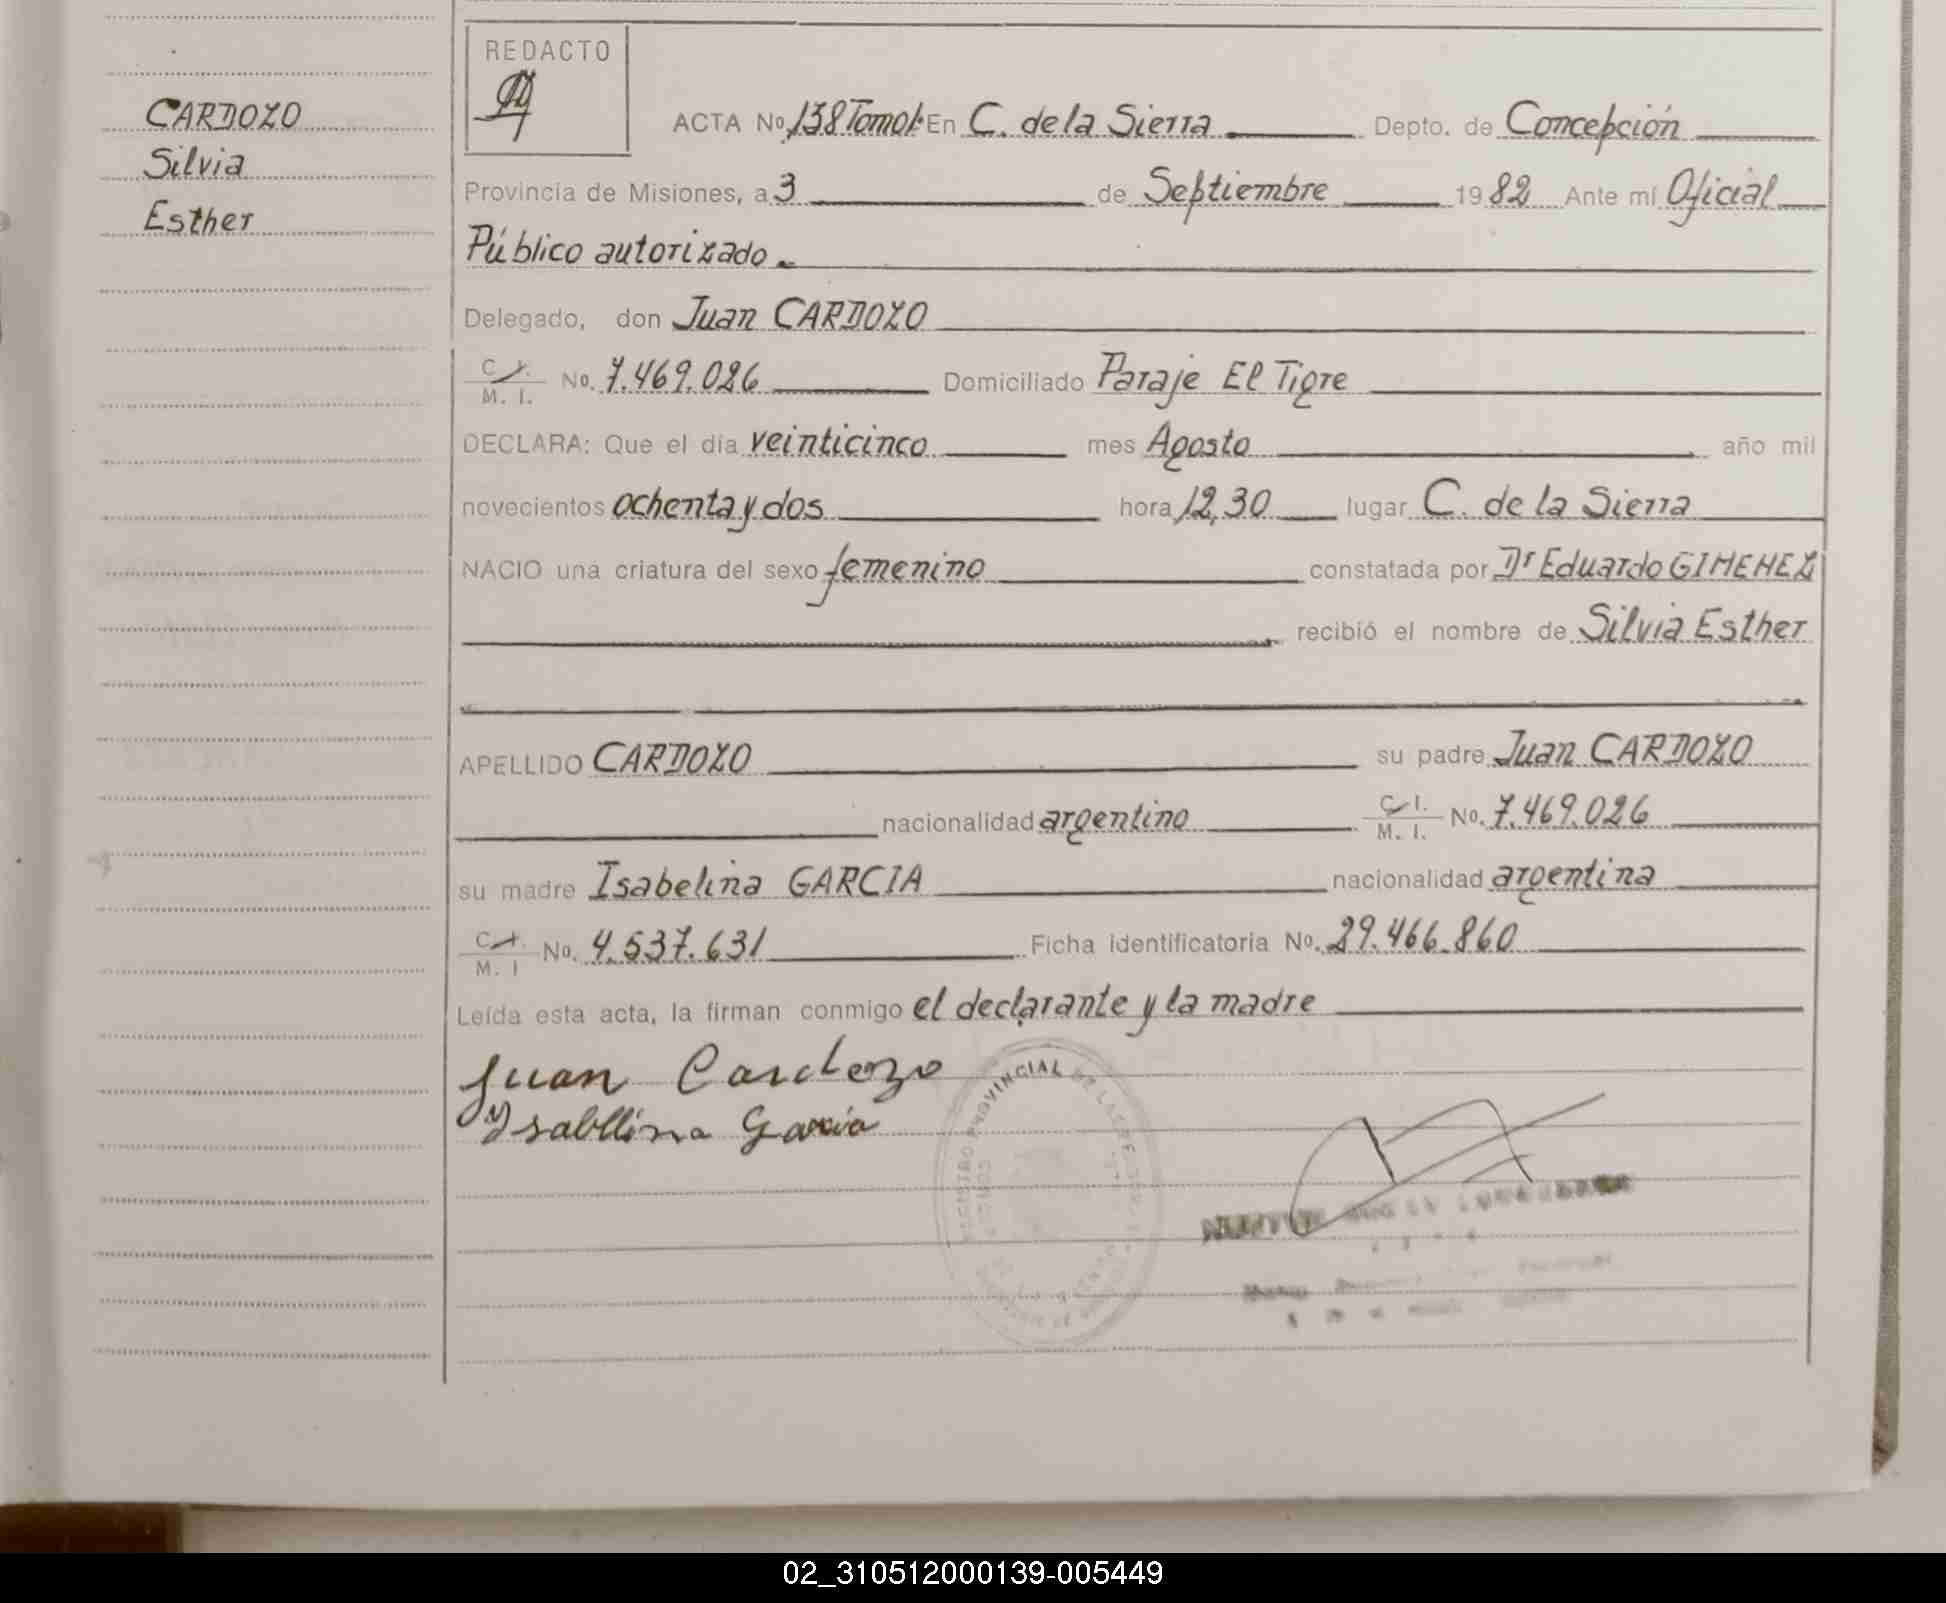 CARDOZO
Silvia
Esther
REDACTO
ACTA No 138 Tomo 1º En C. de la Sierra Depto. de Concepción
Provincia de Misiones, a 3 de Septiembre 1982 Ante mí Oficial
Público autorizado
Delegado, don Juan CARDOZO
C. I.
M. I. No. 7.469.026 Domiciliado Paraje El Tigre
DECLARA: Que el día veinticinco mes Agosto año mil
novecientos ochenta y dos hora 12,30 lugar C. de la Sierra
NACIO una criatura del sexo femenino constatada por Dr Eduardo GIMENEZ
recibió el nombre de Silvia Esther
APELLIDO CARDOZO su padre Juan CARDOZO
nacionalidad argentino C. I.
M. I. No. 7.469.026
su madre Isabelina GARCIA nacionalidad argentina
C. I.
M. I No. 4.537.631 Ficha identificatoria No. 29.466.860
Leída esta acta, la firman conmigo el declarante y la madre
Juan Cardozo
Ysabelina Garcia
REGISTRO PROVINCIAL DE LAS PERSONAS
02_310512000139-005449